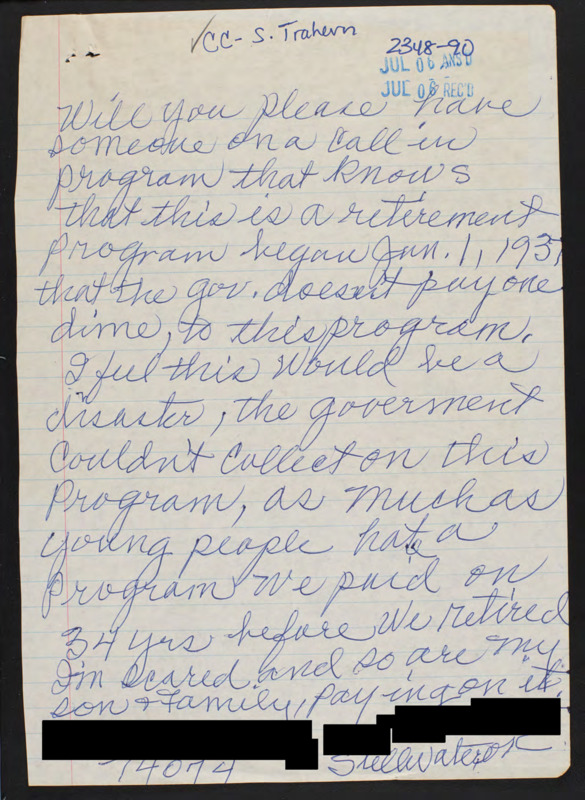 ✓CC- S. Trahern
2348-90
JUL 06 ANS'D
JUL 06 REC'D
Will you please have
someone on a Call in
program that knows
that this is a retirement
program began Jan. 1, 1937
that the gov. doesn't pay one
dime, to this program.
I ful this would be a
disaster, the goverment
Couldn't Collect on this
Program, as much as
young people hate a
Program we paid on
34 yrs before we retired
I'm scared and so are my
son & Family, paying on it.
74074 Stillwater ok